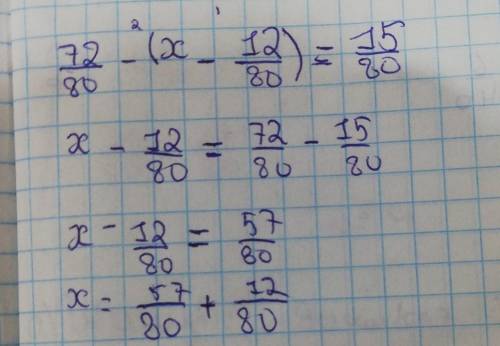 2 1
72/80 - (x - 12/80) = 15/80
x - 12/80 = 72/80 - 15/80
x - 12/80 = 57/80
x = 57/80 + 12/80